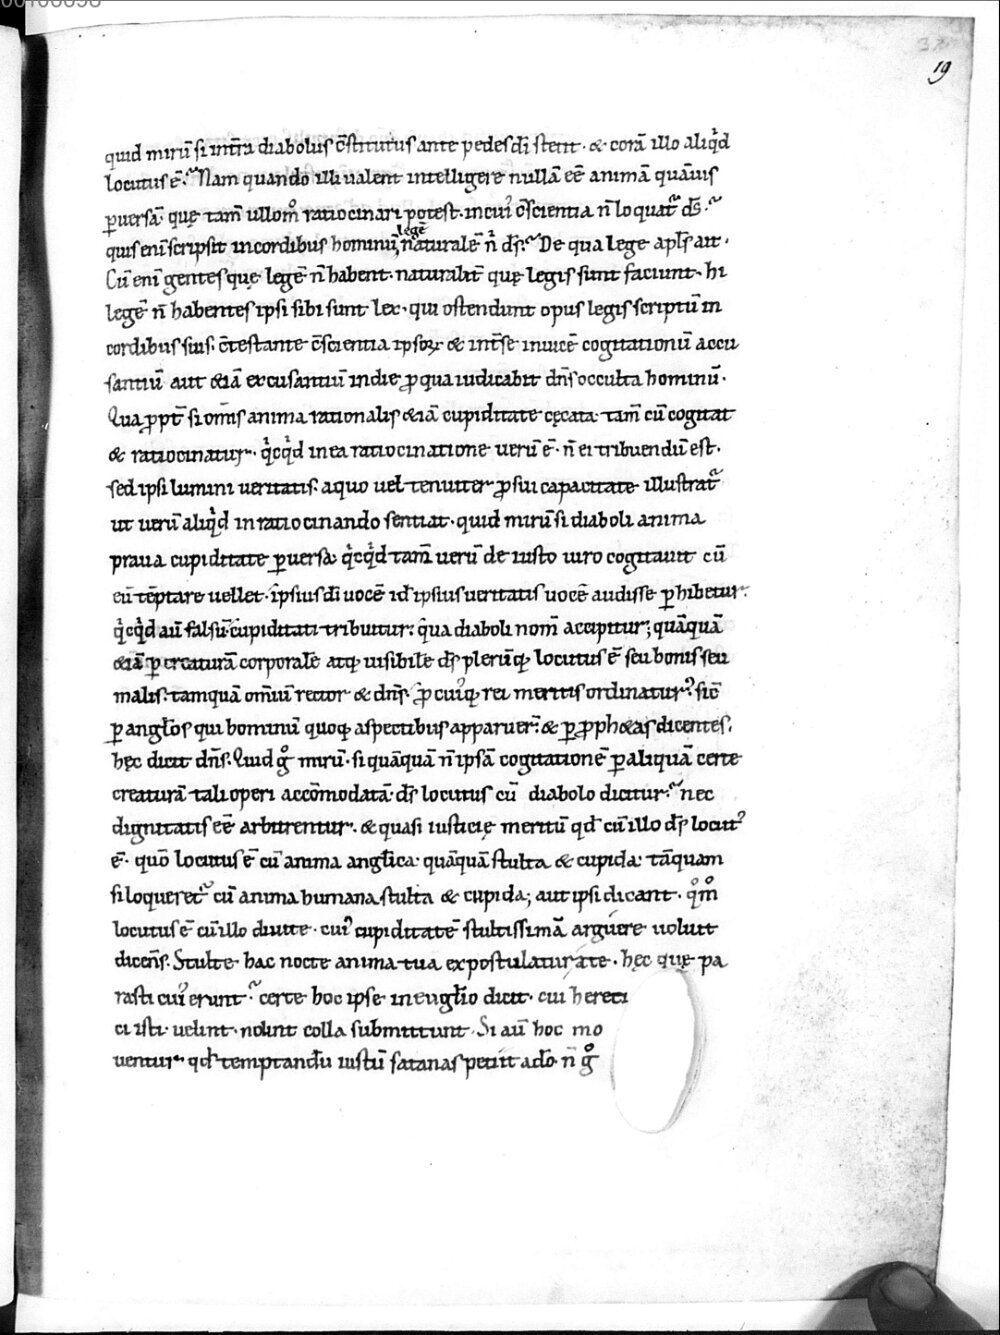 00100098
19
quid mirū si intra diabolus c̄stitutus ante pedes dī stetit · & corā illo aliqͥd
locutus ē. Nam quando illi valent intelligere nullā eē animā quāuis
ꝑuersā · quę tam̄ ullom̊ ratiocinari potest · in cuiꝰ c̄scientia n̄ loquat᷑ ds̄.
quis eni scripsit in cordibus hominū, legē naturalē nͥ ds̄. De qua lege apls̄ ait ·
Cū eni gentes quę legē n̄ habent · naturalit̄ quę legis sunt faciunt · hi
legē n̄ habentes ipsi sibi sunt lex · qui ostendunt opus legis scriptū in
cordibus suis · c̄testante c̄scientia ipsoꝝ & int̄ se inuicē cogitationū accu
santiū aut &iā excusantiū in die ꝓ qua iudicabit dns̄ occulta hominū ·
Qua ꝓpt̄ si om̄is anima rationalis &iā cupiditate cęcata · tam̄ cū cogitat
& ratiocinatur · qͥcqͥd in ea ratiocinatione uerū ē · n̄ ei tribuendū est ·
sed ipsi lumini ueritatis · a quo uel tenuiter ꝓ sui capacitate illustrat᷑
ut uerū aliqͥd in ratiocinando sentiat · quid mirū si diaboli anima
praua cupiditate ꝑuersa · qͥcqͥd tam̄ uerū de iusto uiro cogitauit cū
eū tēptare uellet · ipsius dī uocē id ipsius ueritatis uocē audisse ꝑhibetur ·
qͥcqͥd aū falsū cupiditati tribuitur · qͣ diaboli nom̄ accipitur; quāquā
&iā ꝑ creaturā corporalē atq; uisibilē ds̄ plerūq; locutus ē seu bonis seu
malis · tamquā om̄iū rector & dns̄ · ꝓ cuiꝰq; rei meritis ordinatur · sic̄
ꝑ angłos qui hominū quoq; aspectibus apparuer̄ · & ꝑ ꝓph&as dicentes ·
hęc dicit dns̄. Quid g̊ mirū · si quāquā n̄ ipsā cogitationē ꝑ aliquā certe
creaturā tali operi accōmodatā · ds̄ locutus cū diabolo dicitur · nec
dignitatis eē arbitrentur · & quasi iusticię meritū qđ cū illo ds̄ locutꝰ
ē · quō locutus ē cū anima anglica · quāquā stulta & cupida · tāquam
si loqueret᷑ cū anima humana stulta & cupida; aut ipsi dicant · qͦm̊
locutus ē cū illo diuite · cuiꝰ cupiditatē stultissimā arguere uoluit
dicens̄. Stulte hac nocte anima tua expostulatur a te · hęc quę pa
rasti cuiꝰ erunt · certe hoc ipse in euuglio dicit · cui hereti
ci isti uelint · nolint colla submittunt · Si aū hoc mo
uentur · qđ temptandū iustū satanas petiit a dō · n̄ g̊